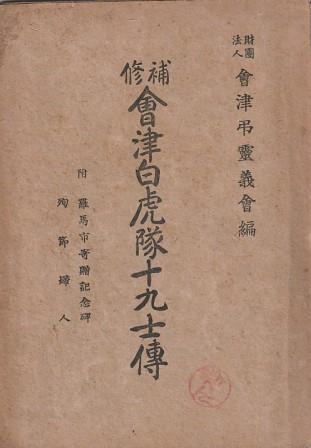 財團法人 會津弔靈義會編
補修 會津白虎隊十九士傳
附 羅馬市寄贈記念碑
殉節婦人